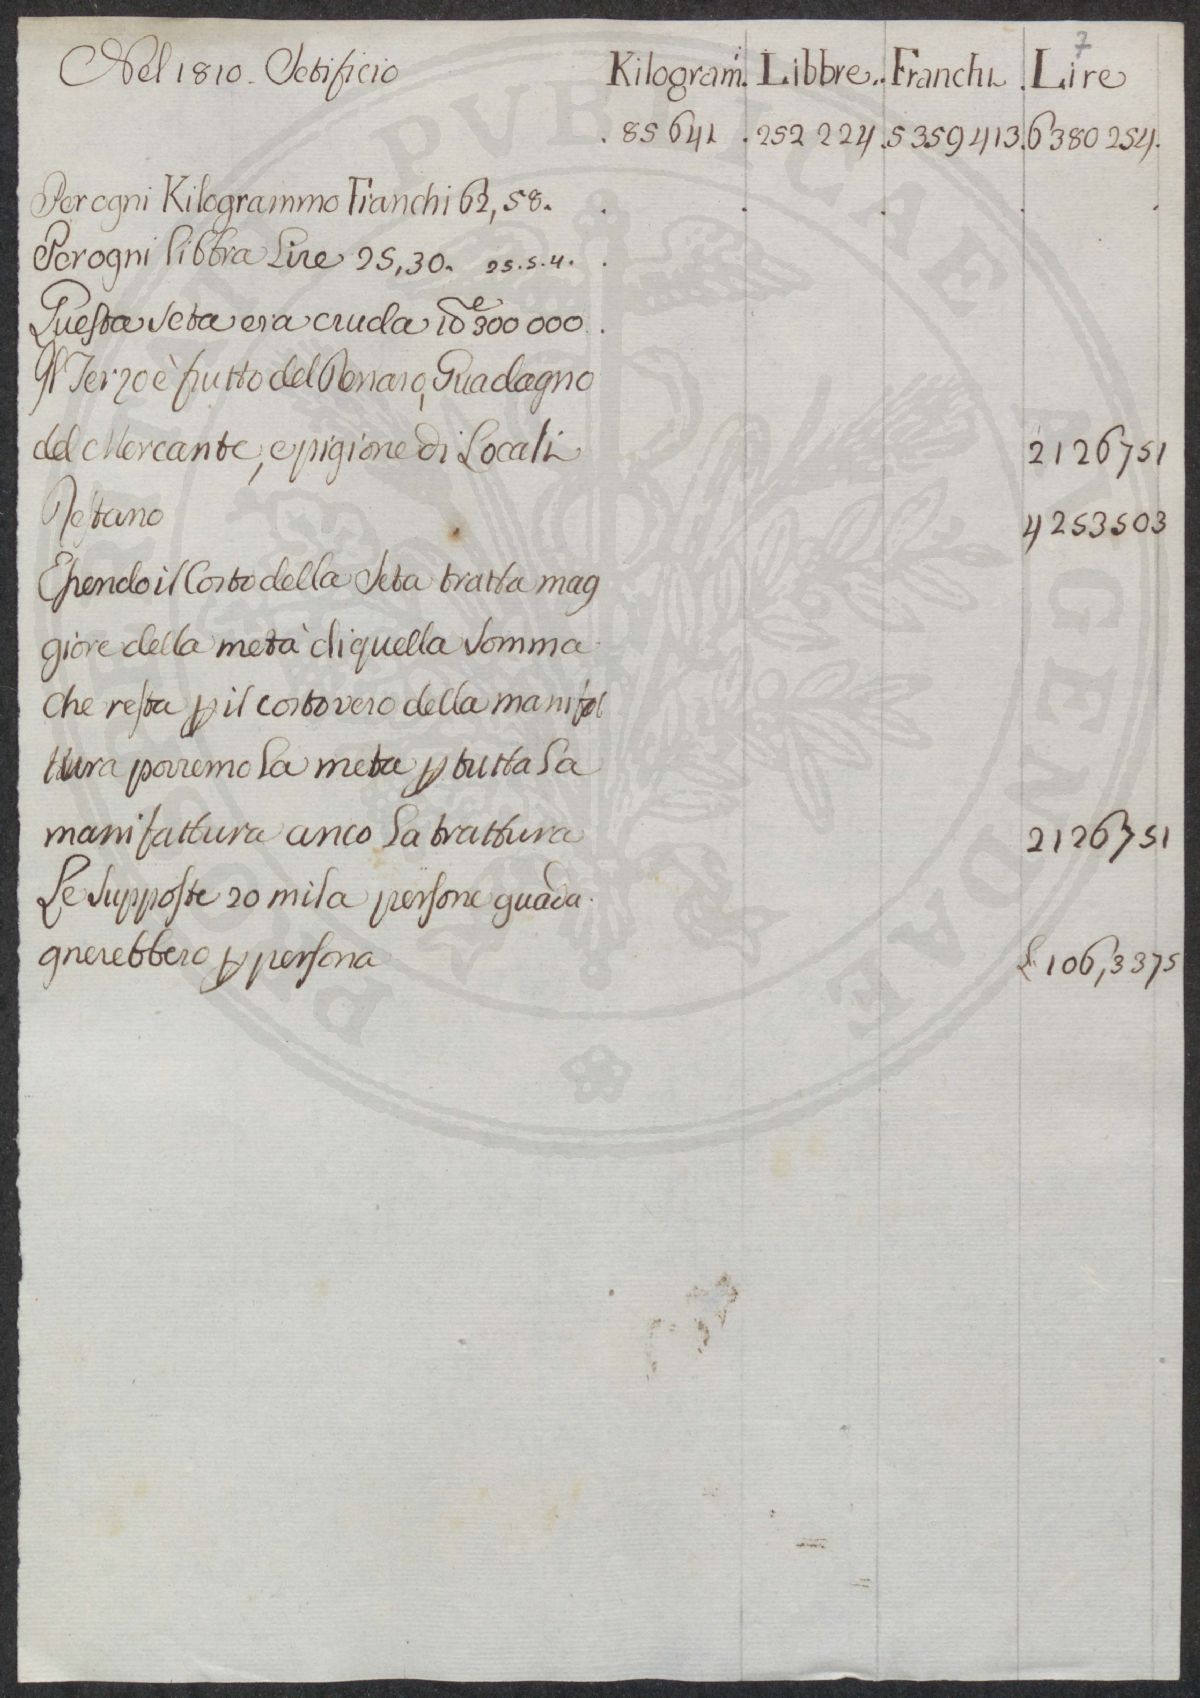 7
Nel 1810. Setificio Kilogram̄i. Libbre.. Franchi. Lire
. 85 641 . 252 224 . 5 359 413. 6 380 254.
Per ogni Kilogrammo Franchi 62,58.
Per ogni libbra Lire 25,30. 25.5.4.
Questa Seta era cruda lb.e 300 000.
Il Terzo è frutto del Denaro, Guadagno
del Mercante, e pigione di Locali 2126751
Restano 4253503
Essendo il Costo della Seta tratta mag
giore della metà di quella Somma
che resta p il costo vero della manifat
tura porremo la metà p tutta la
manifattura anco la trattura 2126751
Le Supposte 20 mila persone guada-
gnerebbero p persona L. 106,3375
PVBLICAE AVGENDAE